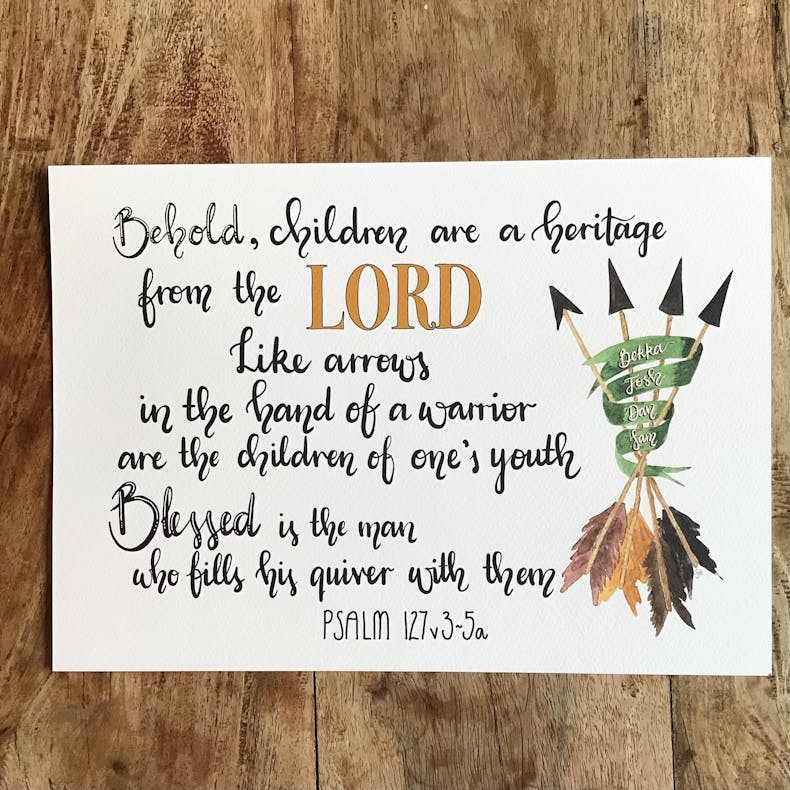 Behold, children are a heritage
from the LORD
Like arrows
in the hand of a warrior
are the children of one's youth
Blessed is the man
who fills his quiver with them
PSALM 127v3~5a
Bekka
Josh
Dan
Sam